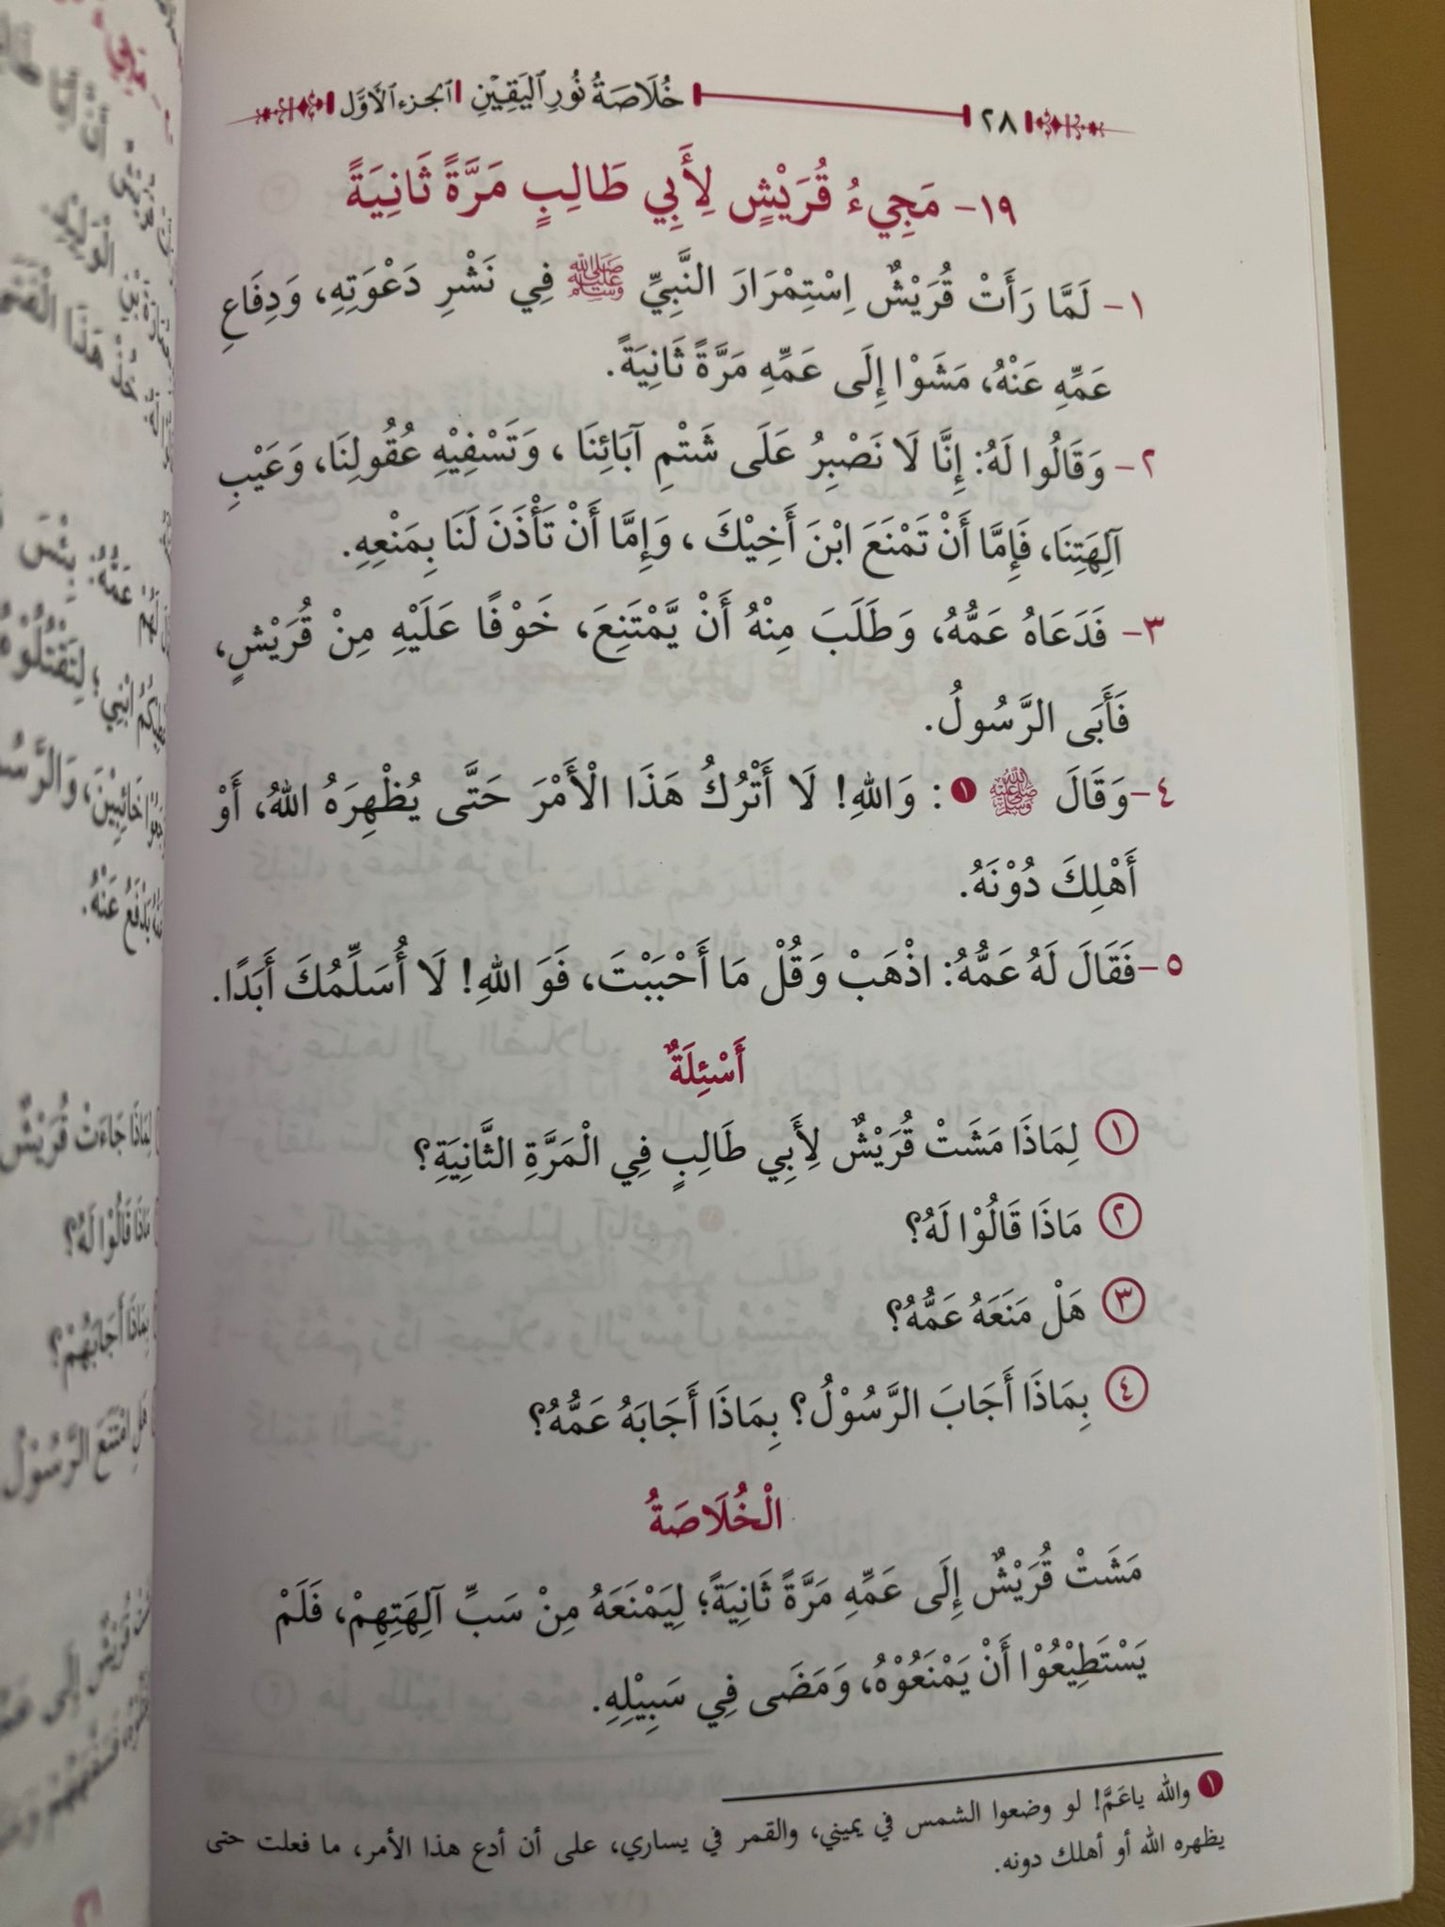 ٢٨ خُلَاصَةُ نُورِ الْيَقِيْنِ الجزء الأوّل
١٩- مَجِيءُ قُرَيْشٍ لِأَبِي طَالِبٍ مَرَّةً ثَانِيَةً
١- لَمَّا رَأَتْ قُرَيْشٌ اِسْتِمْرَارَ النَّبِيِّ ﷺ فِي نَشْرِ دَعْوَتِهِ، وَدِفَاعِ
عَمِّهِ عَنْهُ، مَشَوْا إِلَى عَمِّهِ مَرَّةً ثَانِيَةً.
٢- وَقَالُوا لَهُ: إِنَّا لَا نَصْبِرُ عَلَى شَتْمِ آبَائِنَا ، وَتَسْفِيْهِ عُقُولِنَا، وَعَيْبِ
آلِهَتِنَا، فَإِمَّا أَنْ تَمْنَعَ ابْنَ أَخِيْكَ ، وَإِمَّا أَنْ تَأْذَنَ لَنَا بِمَنْعِهِ.
٣- فَدَعَاهُ عَمُّهُ، وَطَلَبَ مِنْهُ أَنْ يَّمْتَنِعَ، خَوْفًا عَلَيْهِ مِنْ قُرَيْشٍ،
فَأَبَى الرَّسُولُ.
٤- وَقَالَ ﷺ ١ : وَاللهِ! لَا أَتْرُكُ هَذَا الْأَمْرَ حَتَّى يُظْهِرَهُ اللهُ، أَوْ
أَهْلِكَ دُوْنَهُ.
٥- فَقَالَ لَهُ عَمُّهُ: اذْهَبْ وَقُلْ مَا أَحْبَبْتَ، فَوَ اللهِ! لَا أُسَلِّمُكَ أَبَدًا.
أَسْئِلَةٌ
١ لِمَاذَا مَشَتْ قُرَيْشٌ لِأَبِي طَالِبٍ فِي الْمَرَّةِ الثَّانِيَةِ؟
٢ مَاذَا قَالُوْا لَهُ؟
٣ هَلْ مَنَعَهُ عَمُّهُ؟
٤ بِمَاذَا أَجَابَ الرَّسُوْلُ؟ بِمَاذَا أَجَابَهُ عَمُّهُ؟
الْخُلَاصَةُ
مَشَتْ قُرَيْشٌ إِلَى عَمِّهِ مَرَّةً ثَانِيَةً؛ لِيَمْنَعَهُ مِنْ سَبِّ آلِهَتِهِمْ، فَلَمْ
يَسْتَطِيْعُوْا أَنْ يَمْنَعُوْهُ، وَمَضَى فِي سَبِيْلِهِ.
١ والله ياعَمَّ! لو وضعوا الشمس في يميني، والقمر في يساري، على أن أدع هذا الأمر، ما فعلت حتى
يظهره الله أو أهلك دونه.
لِمَاذَا جَاءَتْ قُرَيْشٌ
مَاذَا قَالُوْا لَهُ؟
بِمَاذَا أَجَابَهُمْ؟